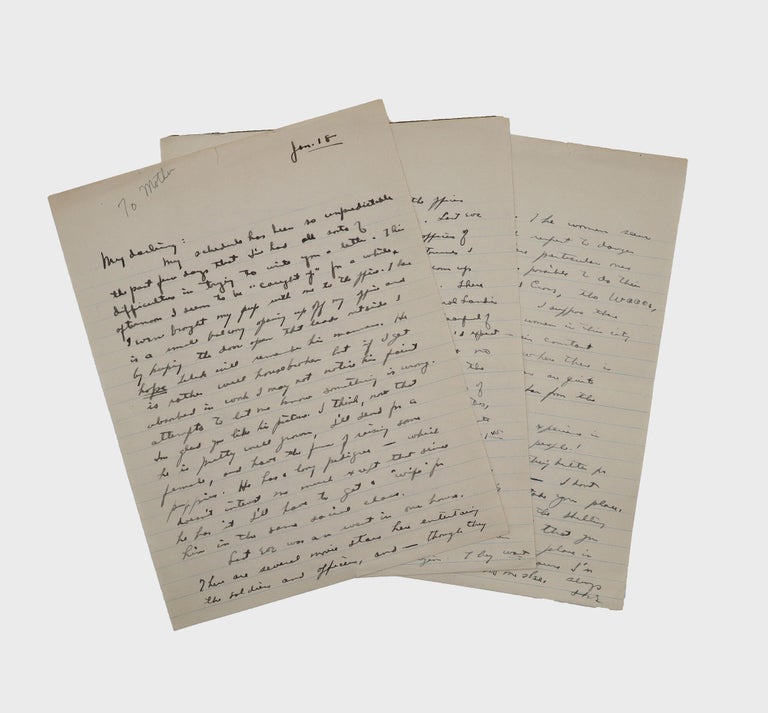 Jan. 18
To Mother
My darling:
My schedule has been so unpredictable
the past few days that I've had all sorts of
difficulties in trying to write you a letter. This
afternoon I seem to be "caught up" for a while.
I even brought my pup with me to the office. I have
is a small balcony opening up off my office and
by keeping the door open that leads outside I
hope Telek will remember his manners. He
is rather well housebroken but if I get
absorbed in work I may not notice his faint
attempts to let me know something is wrong.
I'm glad you like his picture. I think, now that
he is pretty well grown, I'll send for a
female, and have the fun of raising some
puppies. He has a long pedigree — which
doesn't interest me much except that since
he has it I'll have to get a "wife" for
him in the same social class.
Last eve was an event in our house.
There are several movie stars here entertaining
the soldiers and officers, and — though they
the offices
Last eve
offices of
came up
There
Landis
of
I expect —
no
the
of
The women seem
respect to danger
particular ones
possible to do their
Cross, the WAACs,
I suppose there
women in this city
in contact
where there is
far from the
in
people!
I hate
your place,
the shelling
that you
They want place in
I'm
always